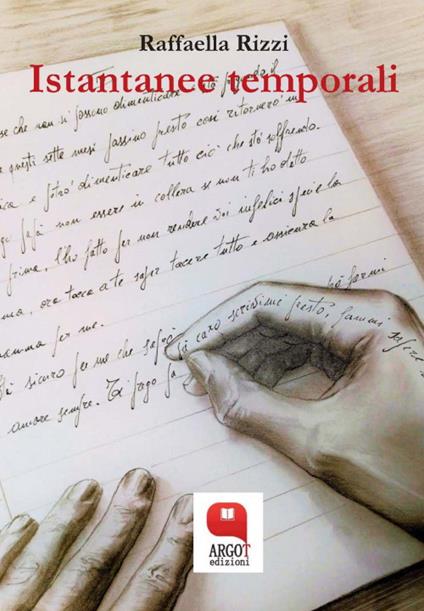 Raffaella Rizzi
Istantanee temporali
se che non si possono dimenticare
questi sette mesi passino presto così ritornerò in
e potrò dimenticare tutto ciò che sto soffrendo.
papà non essere in collera se non ti ho detto
prima, l'ho fatto per non rendere voi infelici specie la
ma, ora tocca a te saper tacere tutto e assicura la
mamma per me.
sicuro per me che papà caro scrivimi presto, fammi sapere
amore sempre. Ti prego fa
ARGOT
edizioni